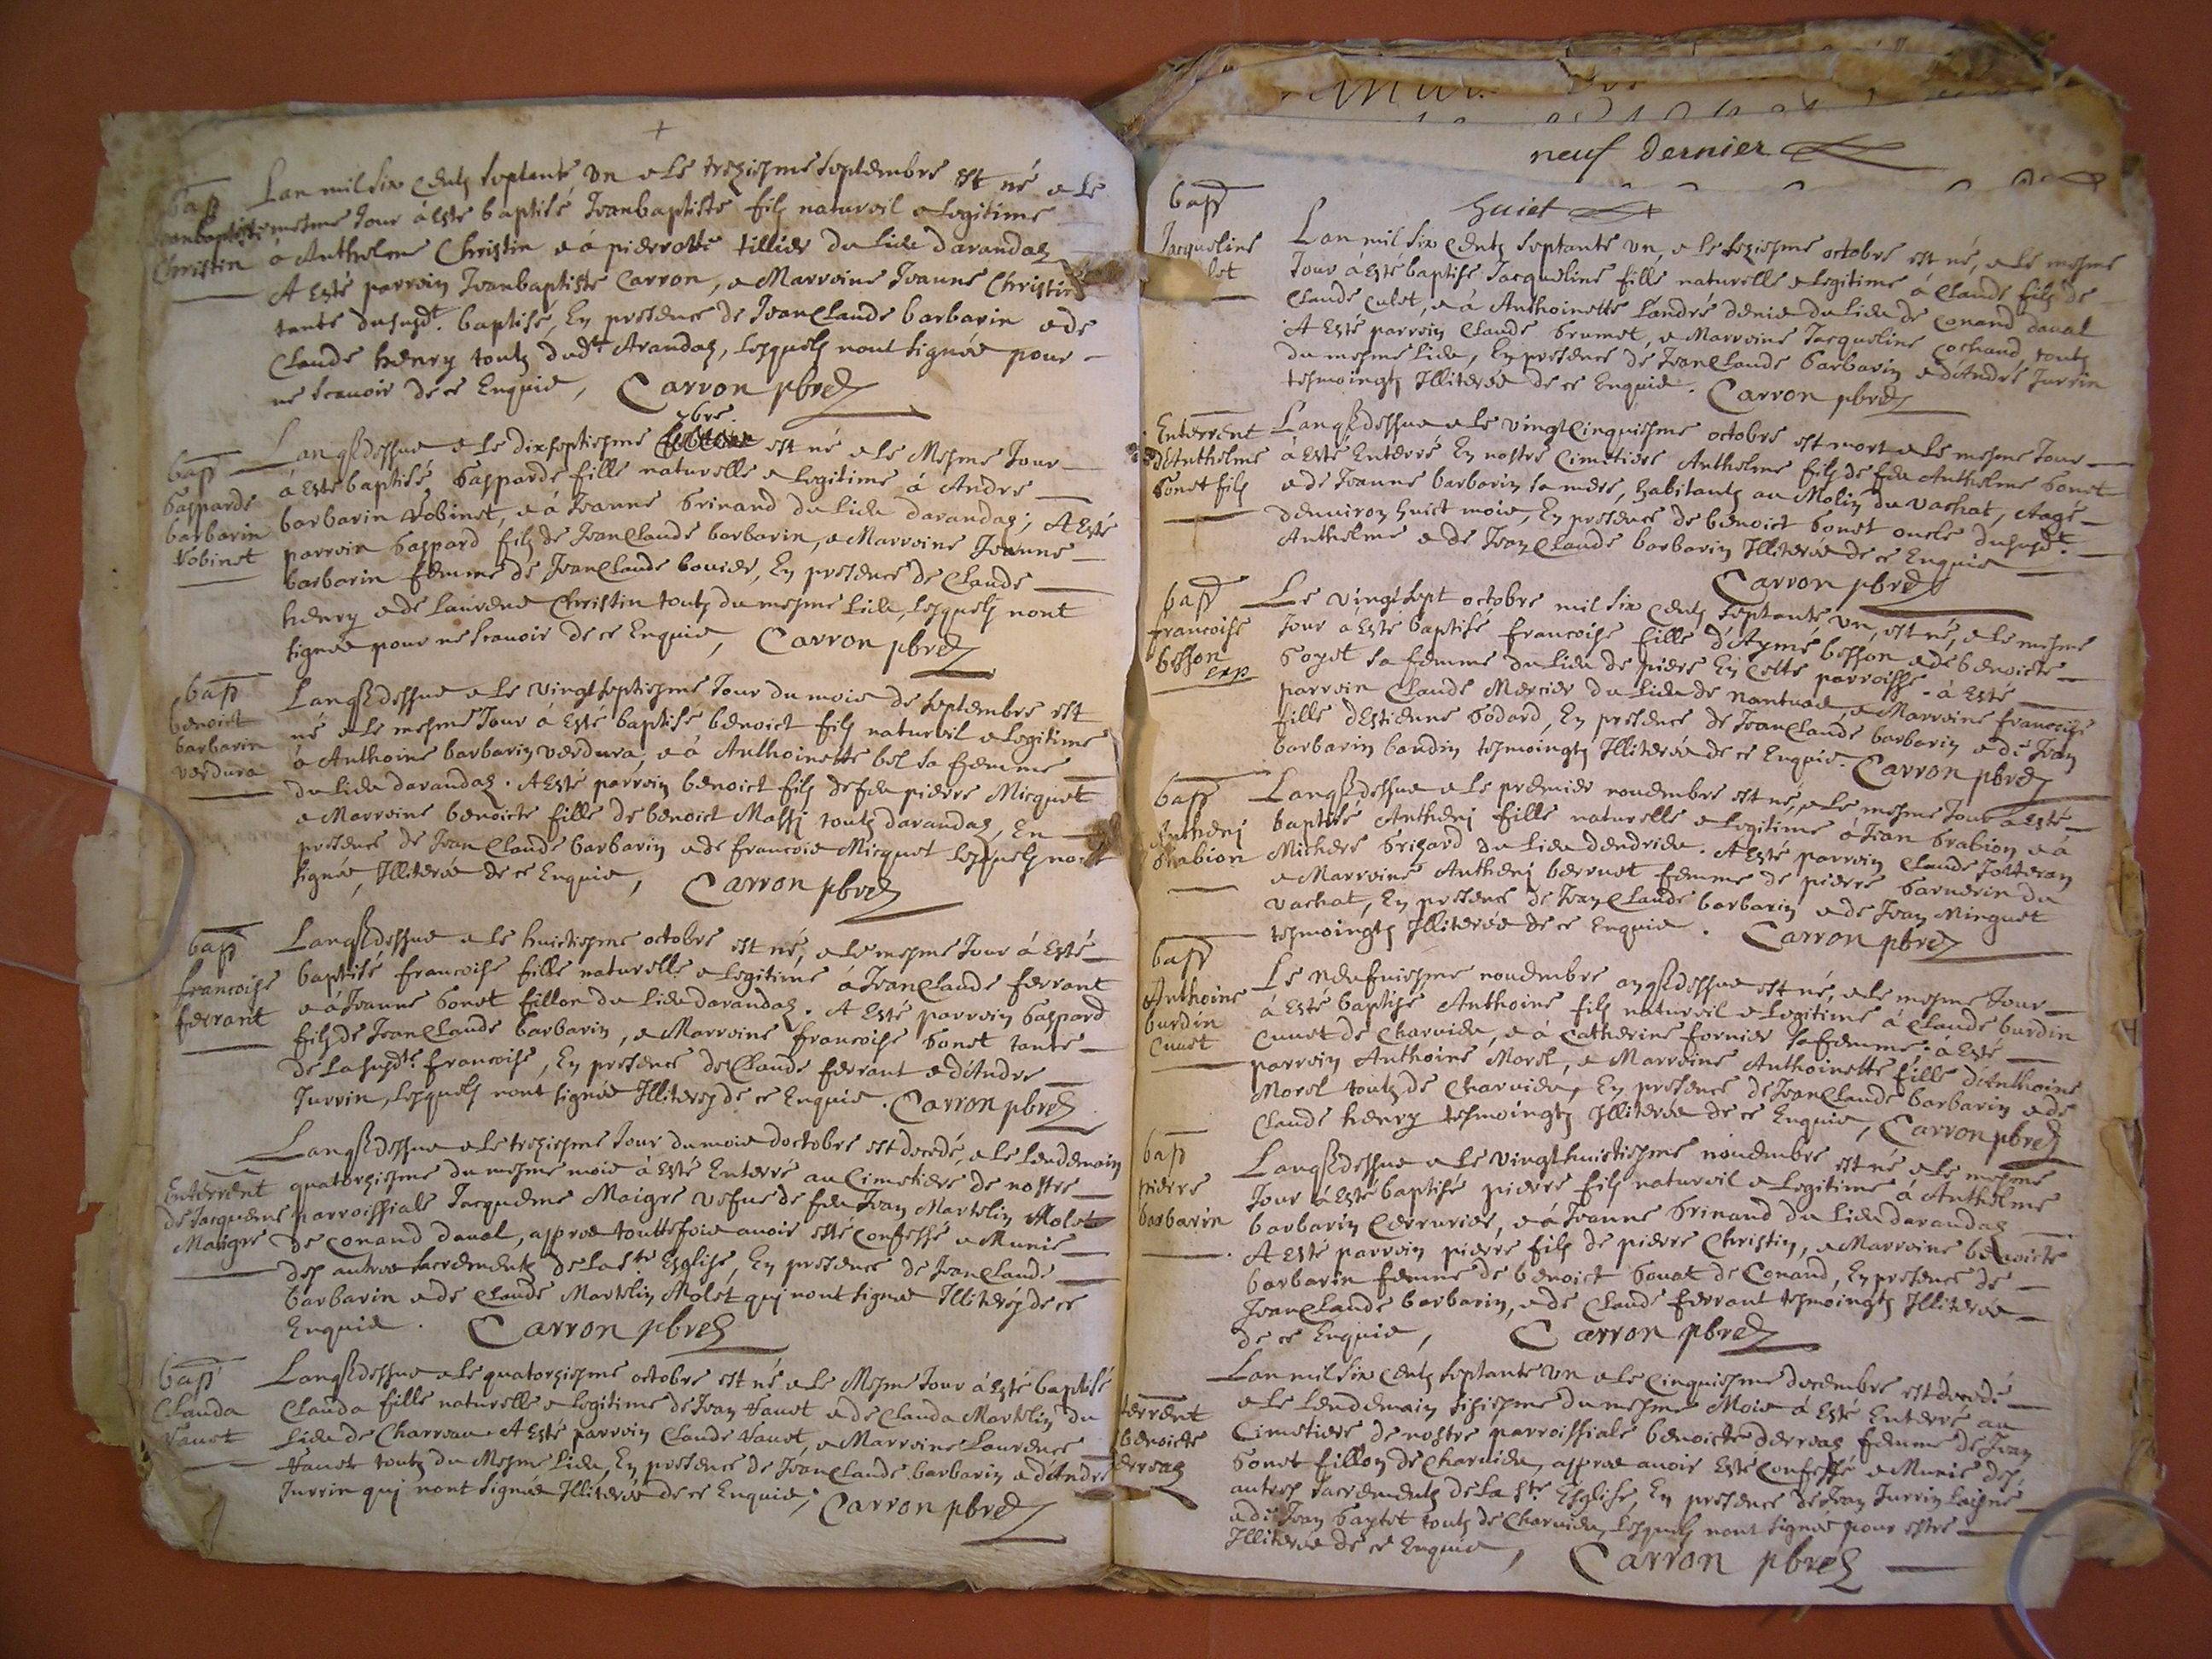 +
bapt
Jeanbaptiste
Christin
Lan mil six centz septante un & le treziesme septembre est né & le
mesme Jour à esté baptisé Jeanbaptiste filz naturel & legitime
à Anthelme Christin & à pierrotte tillier du lieu darandaz
A Esté parrein Jeanbaptiste Carron, & Marreine Jeanne Christin
tante dususdt. baptisé, En presence de JeanClaude barbarin & de
Claude henry toutz dudt Arandaz, lesquelz nont signés pour
ne scavoir de ce Enquis, Carron pbre
bapt
Gasparde
barbarin
Robinet
Lanqsdessus & le dixseptiesme 7bre est né & le Mesme Jour
à esté baptisé Gasparde fille naturelle & legitime à Andre
barbarin Robinet, & à Jeanne Brinand du lieu darandaz; A Esté
parrein Gaspard filz de JeanClaude barbarin, & Marreine Jeanne
barbarin femme de JeanClaude bouier, En presence de Claude
henry & de Laurens Christin toutz du mesme lieu, lesquelz nont
signés pour ne scavoir de ce Enquis, Carron pbre
bapt
benoict
barbarin
verdura
Lanqsdessus & le vingtseptiesme Jour du mois de septembre est
né & le mesme Jour à esté baptisé benoict filz naturel & legitime
à Anthoine barbarin verdura, & à Anthoinette bel sa femme
du lieu darandaz. A Esté parrein benoict filz de feu pierre Micquet
& Marreine benoicte fille de benoict Massj toutz darandaz, En
presence de JeanClaude barbarin & de francois Micquet lesquelz nont
signés, Illiterés de ce Enquis, Carron pbre
bapt
francoise
ferrant
Lanqsdessus & le huictiesme octobre est né, & le mesme Jour à Esté
baptisé francoise fille naturelle & legitime à JeanClaude ferrant
& à Jeanne Bonet fillon du lieu darandaz. A Esté parrein Gaspard
filz de JeanClaude barbarin, & Marreine francoise Bonet tante
de la susdte francoise, En presence de Claude ferrant & d'Andre
Jurrin, lesquelz nont signés Illiterez de ce Enquis. Carron pbre
Enterrent
de Jacqueme
Maigre
Lanqsdessus & le treziesme Jour du mois doctobre est decedé, & le lendemain
quatorziesme du mesme mois à Esté Enterré au Cimetiere de nostre
parroissiale Jacqueme Maigre vefue de feu Jean Martelin Molet
de conand daval, appres touttefois avoir esté Confessé & Munie
des autres sacrementz de la ste Esglise, En presence de JeanClaude
barbarin & de Claude Martelin Molet quj nont signés Illiteréz de ce
Enquis. Carron pbre
bapt
Clauda
Vauet
Lanqsdessus & le quatorziesme octobre est né & le Mesme Jour à esté baptisé
Clauda fille naturelle & legitime de Jean Vauet & de Clauda Martelin du
lieu de Charveu. A Esté parrein Claude Vauet, & Marreine Laurence
Vauet toutz du Mesme lieu, En presence de JeanClaude barbarin & d'Andre
Jurrin quj nont signés Illiterés de ce Enquis, Carron pbre
neuf dernier
huict
bapt
Jacqueline
let
Lan mil six centz septante un, & le seziesme octobre est né, & le mesme
Jour à esté baptisé Jacqueline fille naturelle & legitime à Claude filz de
Claude culet, & à Anthoinette Landré denis du lieu de conand daval
A Esté parrein Claude brumet, & Marreine Jacqueline cochand, toutz
du mesme lieu, En presence de JeanClaude barbarin & d'Andre Jurrin
tesmoingtz Illiterés de ce Enquis. Carron pbre
Enterrent
d'Anthelme
Bonet filz
Lanqsdessus & le vingtcinquiesme octobre est mort & le mesme Jour
à Esté Enterré En nostre Cimetiere Anthelme filz de feu Anthelme Bonet
& de Jeanne barbarin sa mere, habitantz au Molin du vachat, Aagé
denviron huict mois, En presence de benoict Bonet oncle dususdt
Anthelme & de JeanClaude barbarin Illiterés de ce Enquis
Carron pbre
bapt
francoise
besson
exp
Le vingtsept octobre mil six centz septante un, est né, & le mesme
Jour a Esté baptisé francoise fille d'Aymé besson & de benoicte
Goyet sa femme du lieu de piere En Cette parroisse. à Esté
parrein Claude Mercier du lieu de Nantuas, & Marreine francoise
fille dEstienne Godard, En presence de JeanClaude barbarin & de Jean
barbarin baudin tesmoingtz Illiterés de ce Enquis. Carron pbre
bapt
Anthenj
Brabion
Lanqsdessus & le premier novembre est né, & le mesme Jour a Esté
baptisé Anthenj fille naturelle & legitime à Jean Brabion & à
Michere Brizard du lieu dendrieu. A Esté parrein Claude Jotteran
& Marreine Anthenj berruet femme de pierre Garnerin du
vachat, En presence de JeanClaude barbarin & de Jean Minguet
tesmoingtz Illiterés de ce Enquis. Carron pbre
bapt
Anthoine
burdin
Cuuet
Le neufuiesme novembre anqsdessus est né, & le mesme Jour
à Esté baptisé Anthoine filz naturel & legitime à Claude burdin
Cuuet de Charvieu, & à Catherine fornier sa femme. à Esté
parrein Anthoine Morel, & Marreine Anthoinette fille d'Anthoine
Morel toutz de Charvieu, En presence de JeanClaude barbarin & de
Claude henry tesmoingtz Illiterés de ce Enquis, Carron pbre
bapt
pierre
barbarin
Lanqsdessus & le vingthuictiesme novembre est né & le mesme
Jour à Esté baptisé pierre filz naturel & legitime à Anthelme
barbarin Cerrurier, & à Jeanne Brinand du lieu darandaz
A Esté parrein pierre filz de pierre Christin, & Marreine benoicte
barbarin femme de benoict Bonat de Conand, En presence de
JeanClaude barbarin, & de Claude ferrant tesmoingtz Illiterés
de ce Enquis, Carron pbre
terrent
benoicte
derreaz
Lan mil six centz septante un & le Cinquiesme decembre est decedé
& le lendemain sixiesme du mesme Mois à Esté Enterré au
Cimetiere de nostre parroissiale benoicte derreaz femme de Jean
Bonet fillon de Charvieu, appres avoir Esté Confessé & Munie des
autres sacrementz de la ste Esglise, En presence de Jean Jurrin laisné
& de Jean Gaytet toutz de Charvieu, lesquelz nont signés pour estre
Illiterés de ce Enquis, Carron pbre